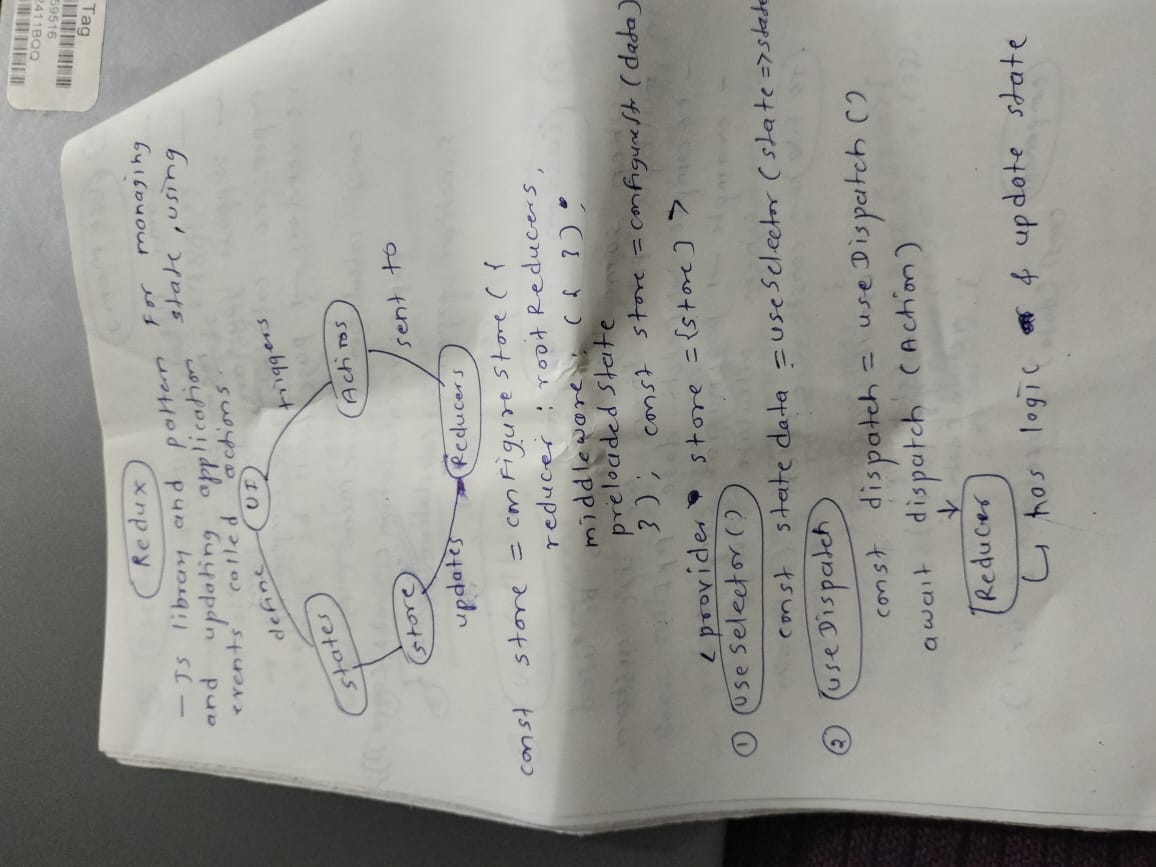 Redux
- JS library and pattern for managing
and updating application state, using
events called actions.
define
UI
triggers
States
Actions
sent to
Store
updates
Reducers
const store = configure store ( {
reducer : root Reducers,
middleware : ( { } ) ,
preloaded state
} ); const store = configurest (data)
< provider store = {store} >
① use selector ()
const state data = use selector (state => state
② use Dispatch
const dispatch = use Dispatch ()
await dispatch (Action)
↓
Reducer
↳ has logic & update state
Tag
59516
2411BQQ